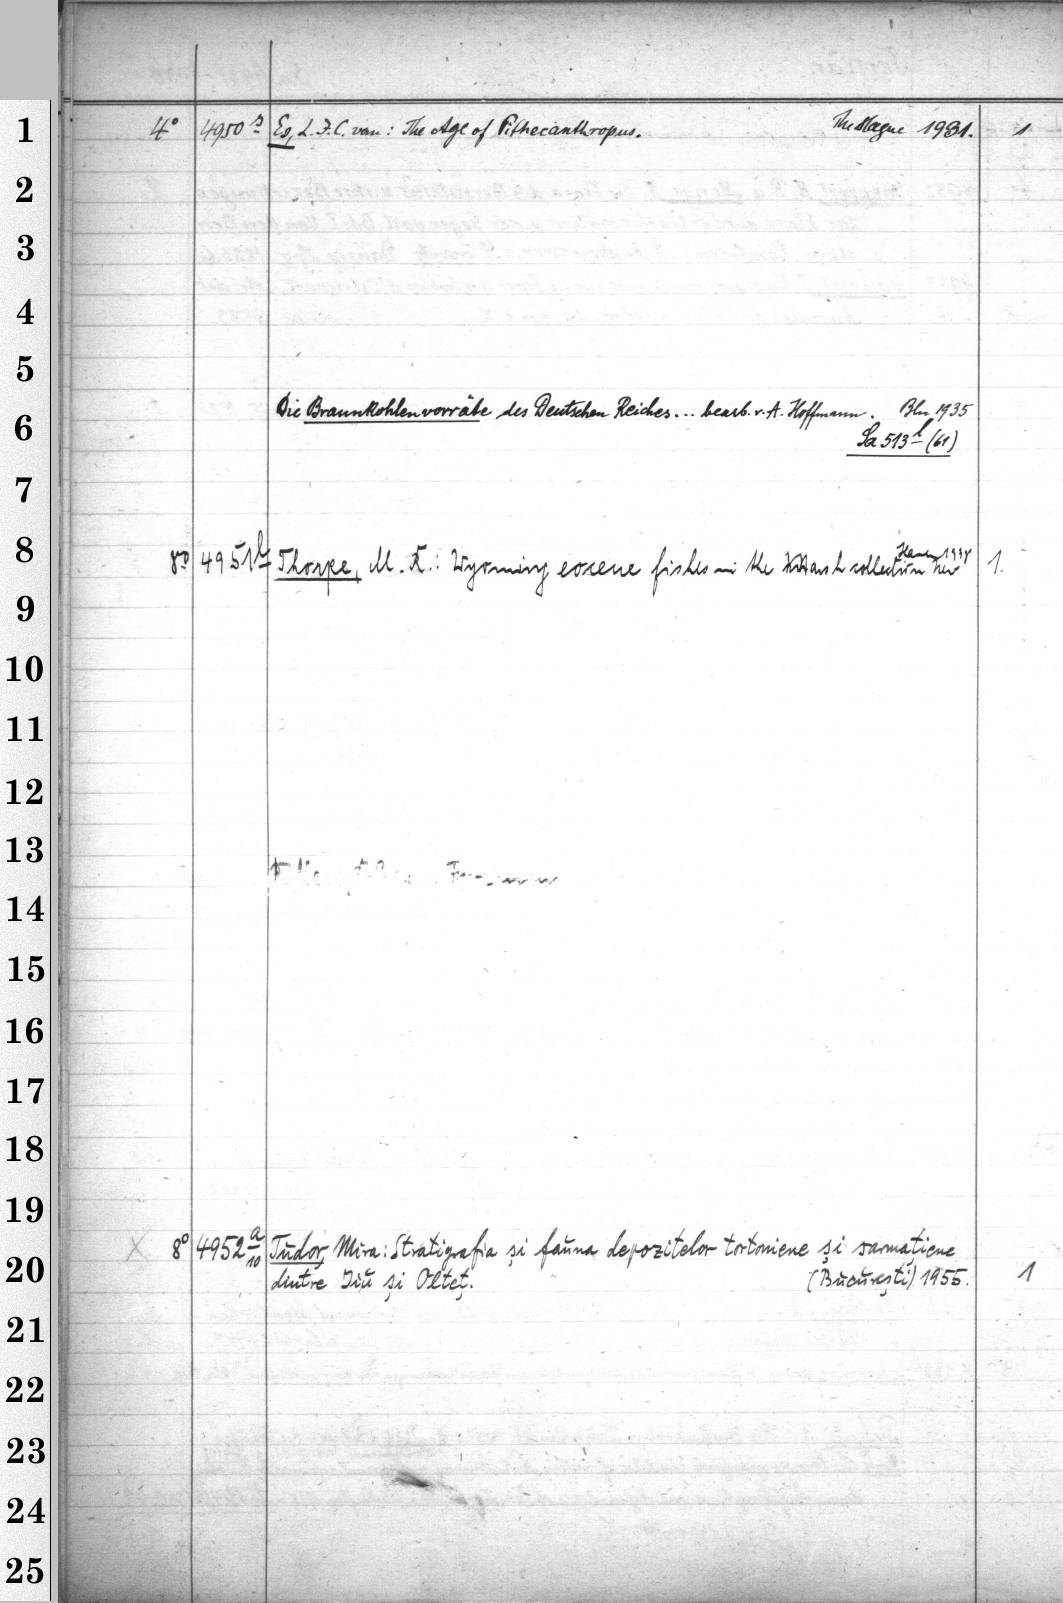 1 4° 4950 s Es, L. J. C. van: The Age of Pithecanthropus. The Hague 1931. 1
2
3
4
5
Die Braunkohlenvorräte des Deutschen Reiches... bearb. v. A. Hoffmann. Bln 1935
6
Sa 513 l (61)
7
8 8° 4951 b Thorpe, M. R.: Wyoming eocene fishes in the Marsh collection New Haven 1938 1.
9
10
11
12
13
14
15
16
17
18
19
X 8° 4952 a/10 Tudor, Mira: Stratigrafia și fauna depozitelor tortoniene și sarmațiene
20 dintre Jiu și Olteț. (București) 1955. 1
21
22
23
24
25